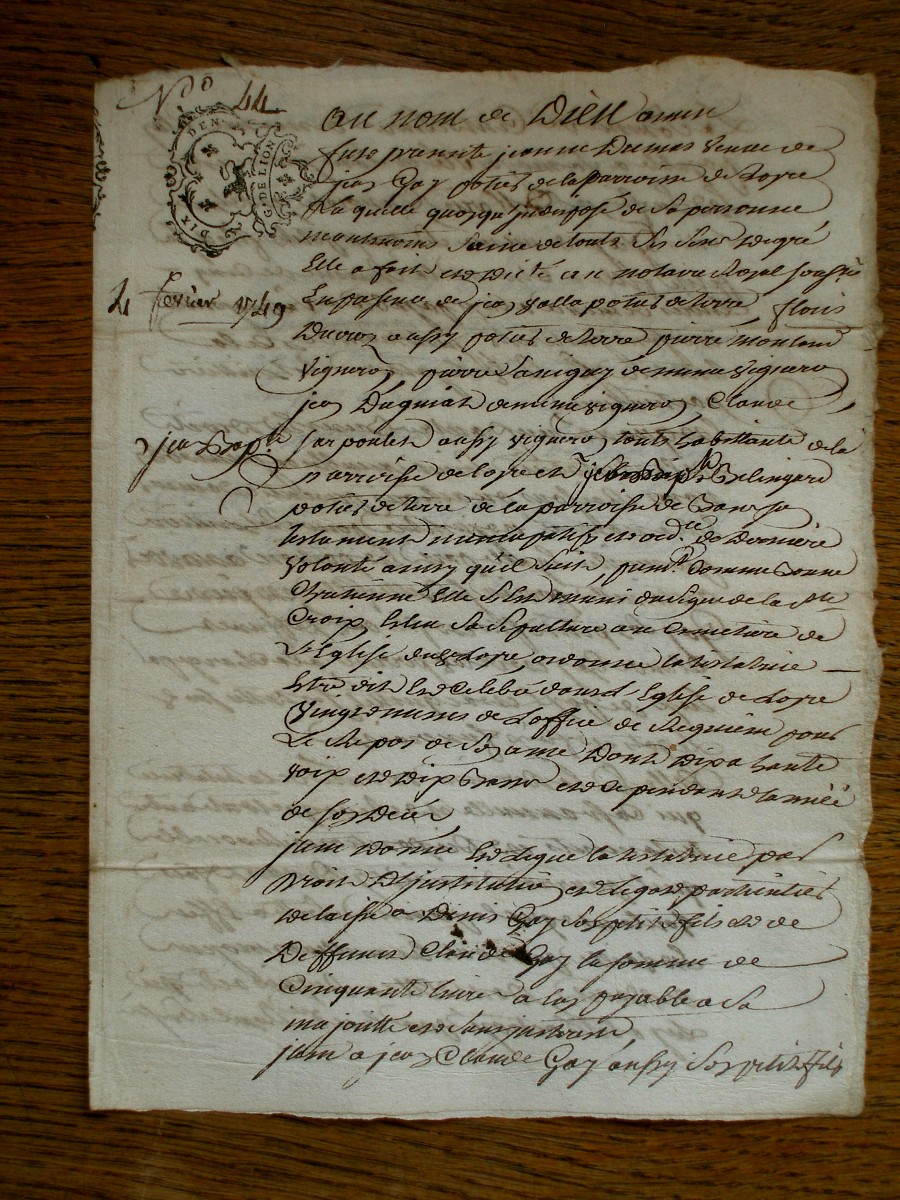 N° 44
DIX DEN.
G. DE LION
au nom de Dieu amen
fust presente jeanne Dumas veuve de
jean Gay potier de la parroisse de Loyre
Laquelle quoique indisposé de sa personne
neantmoins saine de touts ses sens de gré
Elle a fait et dicté au notaire Royal soussigné
4 fevrier 1749
En presence de jean potier de terre floris
Ducros aussy potier de terre pierre
vigneron, pierre de meme vigneron
jean de meme vigneron, Claude
jean Bapt.e
aussy vigneron, touts habittants de la
parroisse de Loyre et Belingard
potier de terre de la parroisse de
testament nuncupatif et ord.ce de derniere
volonté ainsy qu'il suit, prem.t comme bonne
Chretienne Elle s'est muni du signe de la S.te
Croix Eslu sa sepulture au Cimetiere de
L'Eglise dud. Loyre, ordonne la testatrice
Estre dit et celebré dans l'Eglise de Loyre
vingt messes de L'office de Requiem pour
Le Repos de son ame Dont dix a haute
voix et dix basse et ce pendant l'année
de son decés
jtem donne et legue la testatrice par
Droit D'institution et legat particulier
delaisse a Denis Gay son petit fils et de
Deffunct Claude Gay la somme de
Cinquante livre a luy payable a sa
majorité et sans jnterest
jtem a jean Claude Gay aussy son petit fils